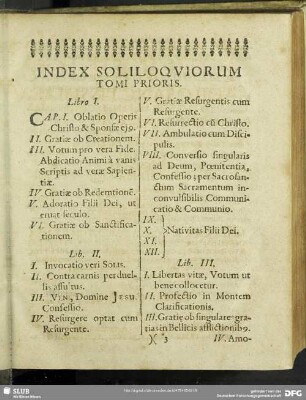 INDEX SOLILOQVIORUM
TOMI PRIORIS.
Libro I.
CAP. I. Oblatio Operis
Christo & Sponsæ ejꝰ.
II. Gratiæ ob Creationem.
III. Votum pro vera Fide.
Abdicatio Animi à vanis
Scriptis ad veræ Sapien-
tiæ.
IV. Gratiæ ob Redemtionē.
V. Adoratio Filii Dei, ut
enuat seculo.
VI. Gratiæ ob Sanctifica-
tionem.
Lib. II.
I. Invocatio veri Solis.
II. Contra carnis perduel-
lis assultus.
III. Veni, Domine Jesu.
Confessio.
IV. Resurgere optat cum
Resurgente.
V. Gratiæ Resurgentis cum
Resurgente.
VI. Resurrectio cū Christo.
VII. Ambulatio cum Disci-
pulis.
VIII. Conversio singularis
ad Deum, Pœnitentia,
Confessio; per Sacrosan-
ctum Sacramentum in-
convulsibilis Communi-
catio & Communio.
IX.
X.
XI.
XII.
Nativitas Filii Dei.
Lib. III.
I. Libertas vitæ, Votum ut
bene collocetur.
II. Profectio in Montem
Clarificationis.
III. Gratiæ ob singulare gra-
tias in Bellicis afflictionibꝰ.
)( 3
IV. Amo-
SLUB
Wir führen Wissen.
DFG